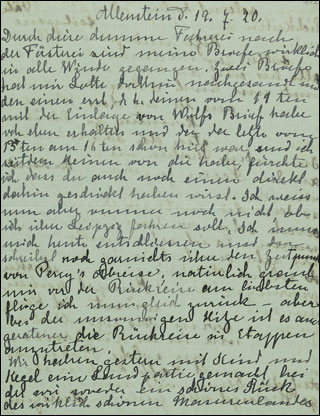 Allenstein d. 19. 7. 20.
Durch diese dumme Fahrerei nach
der Försterei sind meine Briefe wirklich
in alle Winde gegangen. Zwei Briefe
hat mir Lotte nachgesandt und
den einen erst, d. h. deinen vom 11ten
mit der Einlage von Wulfs Brief habe
ich eben erhalten und der letzte vom
13ten am 16ten schon hier war und ich
seitdem keinen von dir habe, fürchte
ich dass du auch noch einen direkt
dahin geschickt haben wirst. Ich weiss
nun aber immer noch nicht ob
ich über Leipzig fahren soll. Ich muss
mich heute entschliessen und du
schreibst noch garnichts über den Zeitpunkt
von Percy's Abreise, natürlich graut
mir vor der Rückreise am liebsten
flöge ich nun gleich zurück, aber
bei der unsinnigen Hitze ist es auch
geratener die Rückreise in Etappen
anzutreten.
Wir haben gestern mit Kind und
Kegel eine Landpartie gemacht bei
der wir wieder ein schönes Stück
des wirklich schönen Masurenlandes